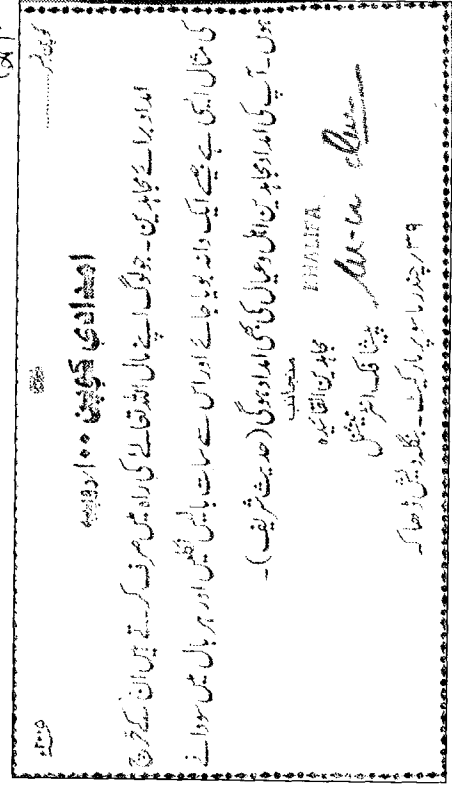 ۲۰۰۵ء
کوپن نمبر............
امدادی کوپن ۱۰۰ روپیہ
امداد برائے مجاہدین۔ جو لوگ اپنے مال اللہ تعالےٰ کی راہ میں صرف کرتے ہیں ان کے خرچ
کی مثال ایسی ہے جیسے ایک دانہ بویا جائے اور اس سے سات بالیں نکلیں اور ہر بال میں سو دانے
ہوں۔ آپ کی امداد مجاہدین اہل و عیال کی بھی امداد ہوگی (حدیث شریف)۔
منجانب
مجاہدین القائیدہ
KHALIFA
پیٹا گک انٹرنیشنل
۳۹ر چندرما سوپر مارکیٹ۔ بنگلہ دیش ڈھاکہ